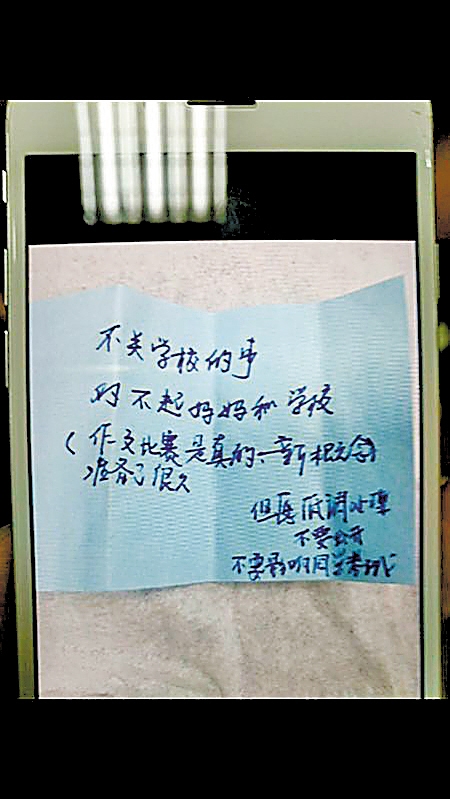 不关学校的事
对不起妈妈和学校
（作文比赛是真的、新概念
准备了很久
但愿低调处理
不要公开
不要影响同学考试